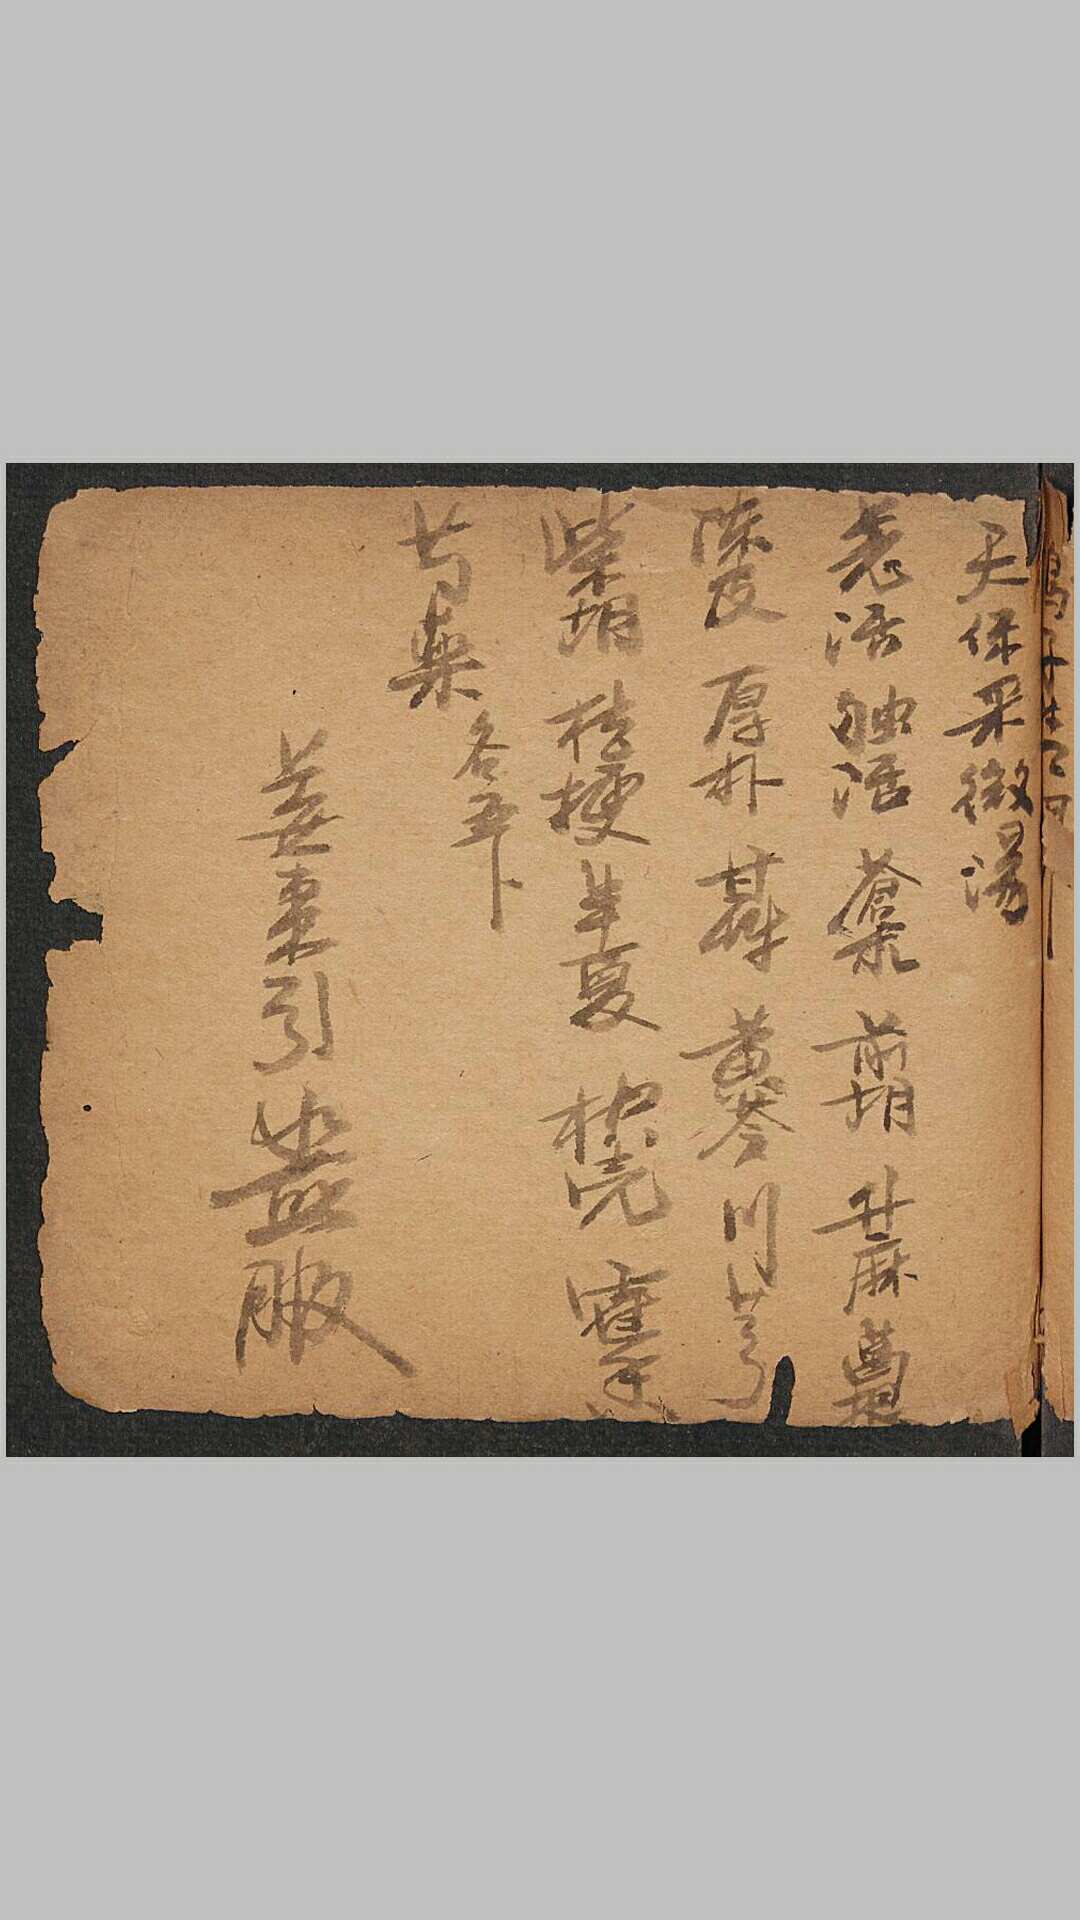 天保采微湯
羌活 独活 蒼朮 前胡 升麻 葛根
陳皮 厚朴 甘草 黄芩 川芎
柴胡 桔梗 半夏 枳壳 藿香
芍藥 各五卜
姜枣引 盐服